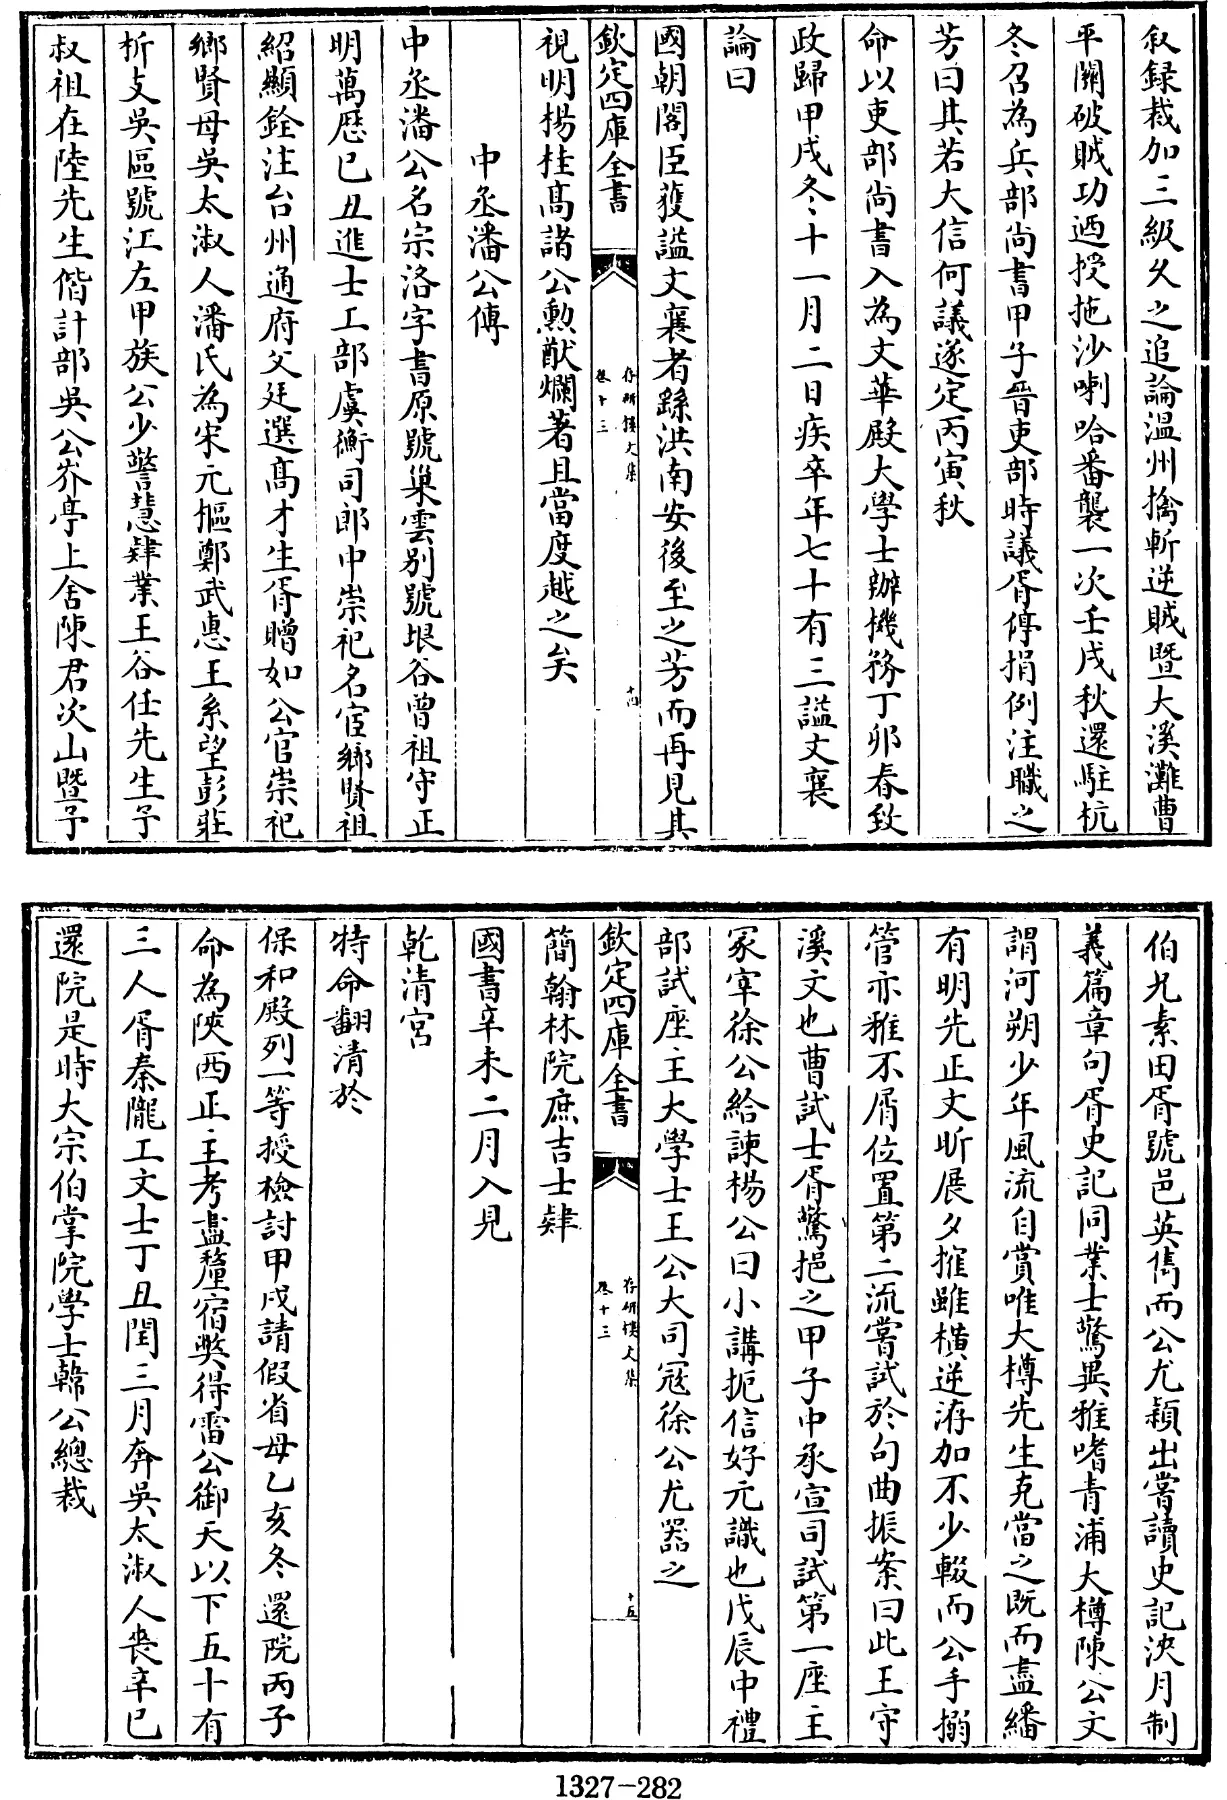 叙録裁加三級久之追論溫州擒斬逆賊暨大溪灘曹
平關破賊功迺授拖沙喇哈番襲一次壬戌秋還駐杭
冬召為兵部尚書甲子晉吏部時議胥停捐例注職之
芳曰其若大信何議遂定丙寅秋
命以吏部尚書入為文華殿大學士辦機務丁卯春致
政歸甲戌冬十一月二日疾卒年七十有三諡文襄
論曰
國朝閣臣獲諡文襄者繇洪南安後至之芳而再見其
欽定四庫全書
存研樓文集
卷十三
十四
視明楊桂高諸公勲猷爛著且當度越之矣
中丞潘公傳
中丞潘公名宗洛字書原號巢雲别號垠谷曾祖守正
明萬歴已丑進士工部虞衡司郎中崇祀名宦鄉賢祖
紹顯銓注台州通府父廷選高才生胥贈如公官崇祀
鄉賢母吳太淑人潘氏為宋元樞鄭武惠王系望彭莊
析支吳區號江左甲族公少警慧肄業王谷任先生予
叔祖在陸先生偕計部吳公岕亭上舍陳君次山暨予
伯九素田胥號邑英儁而公尤穎出嘗讀史記浹月制
義篇章句胥史記同業士驚異雅嗜青浦大樽陳公文
謂河朔少年風流自賞唯大樽先生克當之既而盡繙
有明先正文昕展夕摧雖橫逆洊加不少輟而公手搦
管亦雅不屑位置第二流嘗試於句曲振案曰此王守
溪文也曹試士胥驚挹之甲子中承宣司試第一座主
冡宰徐公給諫楊公曰小講扼信好元識也戊辰中禮
部試座主大學士王公大司冦徐公尤器之
欽定四庫全書
存研樓文集
卷十三
十五
簡翰林院庶吉士肄
國書辛未二月入見
乾清宮
特命翻清於
保和殿列一等授檢討甲戌請假省母乙亥冬還院丙子
命為陝西正主考盡釐宿獘得雷公御天以下五十有
三人胥秦隴工文士丁丑閏三月奔吳太淑人喪辛已
還院是時大宗伯掌院學士韓公總裁
1327-282